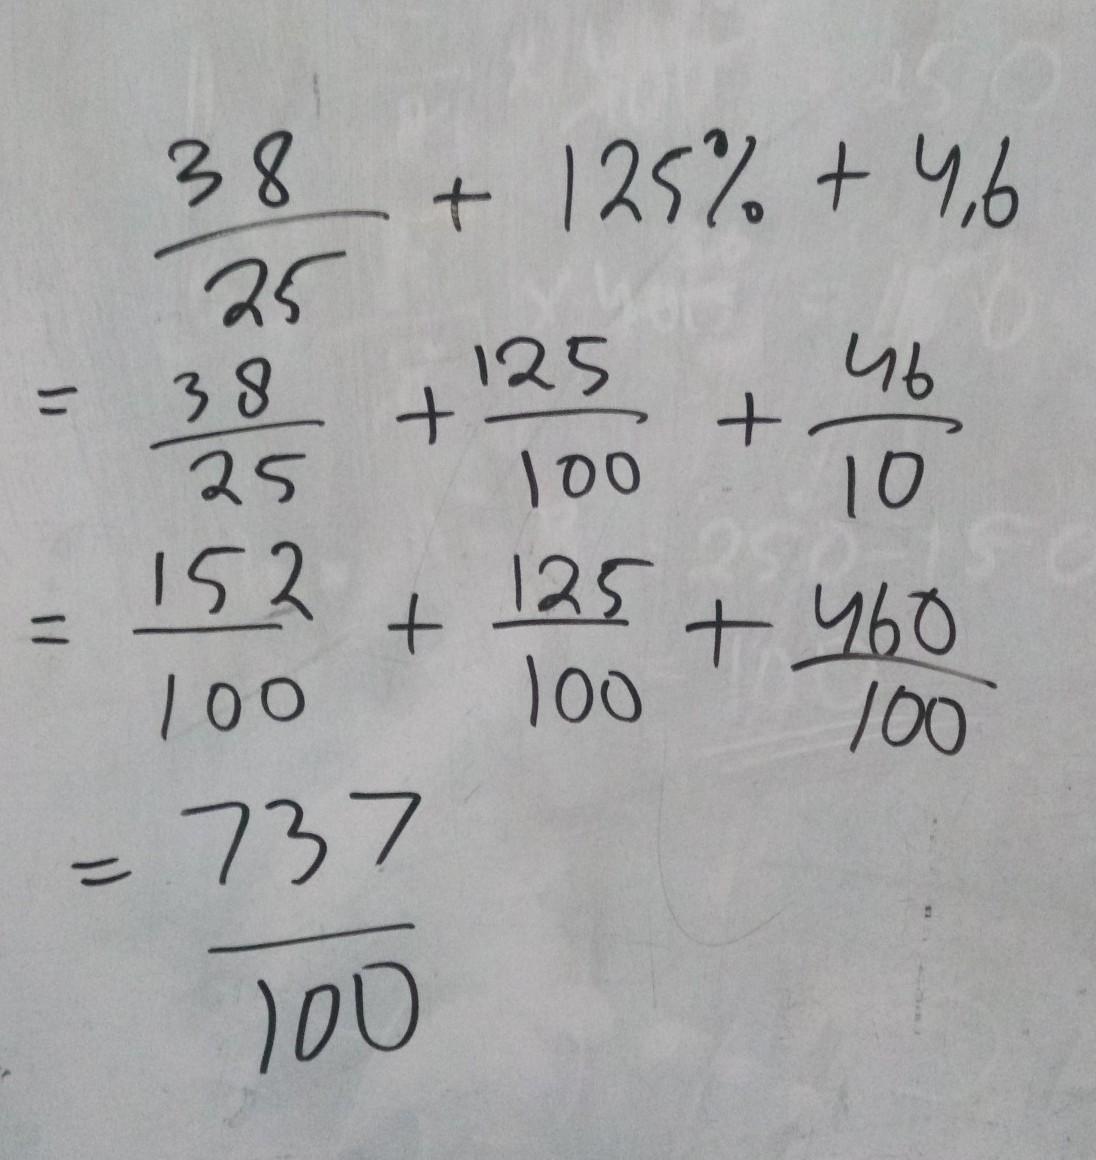 38/25 + 125% + 4,6
= 38/25 + 125/100 + 46/10
= 152/100 + 125/100 + 460/100
= 737/100